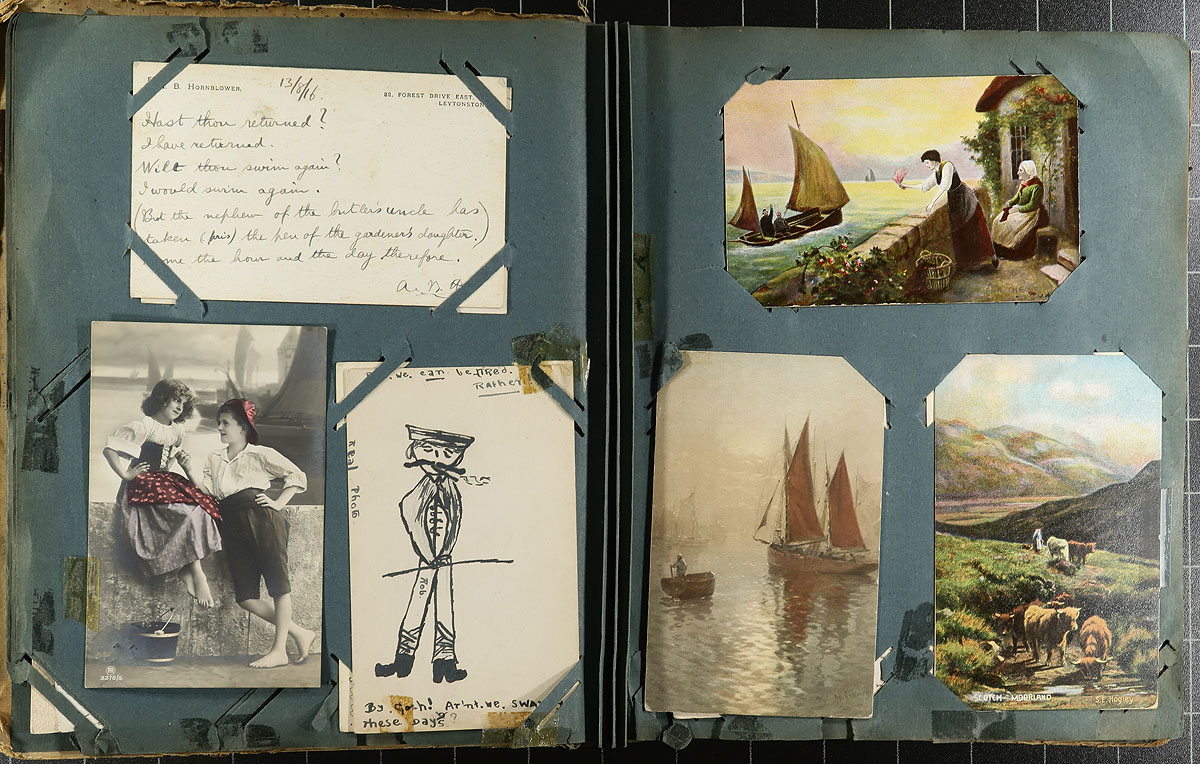 B. HORNBLOWER,
13/8/16.
32, FOREST DRIVE EAST,
LEYTONSTON
Hast thou returned?
I have returned.
Wilt thou swim again?
I would swim again.
(But the nephew of the butlers uncle has)
taken (pris) the pen of the gardener's daughter.)
me the hour and the day therefore.
3376/5
we can be
Rather
Real Photo
Rob
By Gosh! Ar'nt. we. SWA
these Days?
SCOTCH MOORLAND
S.E. Hogley